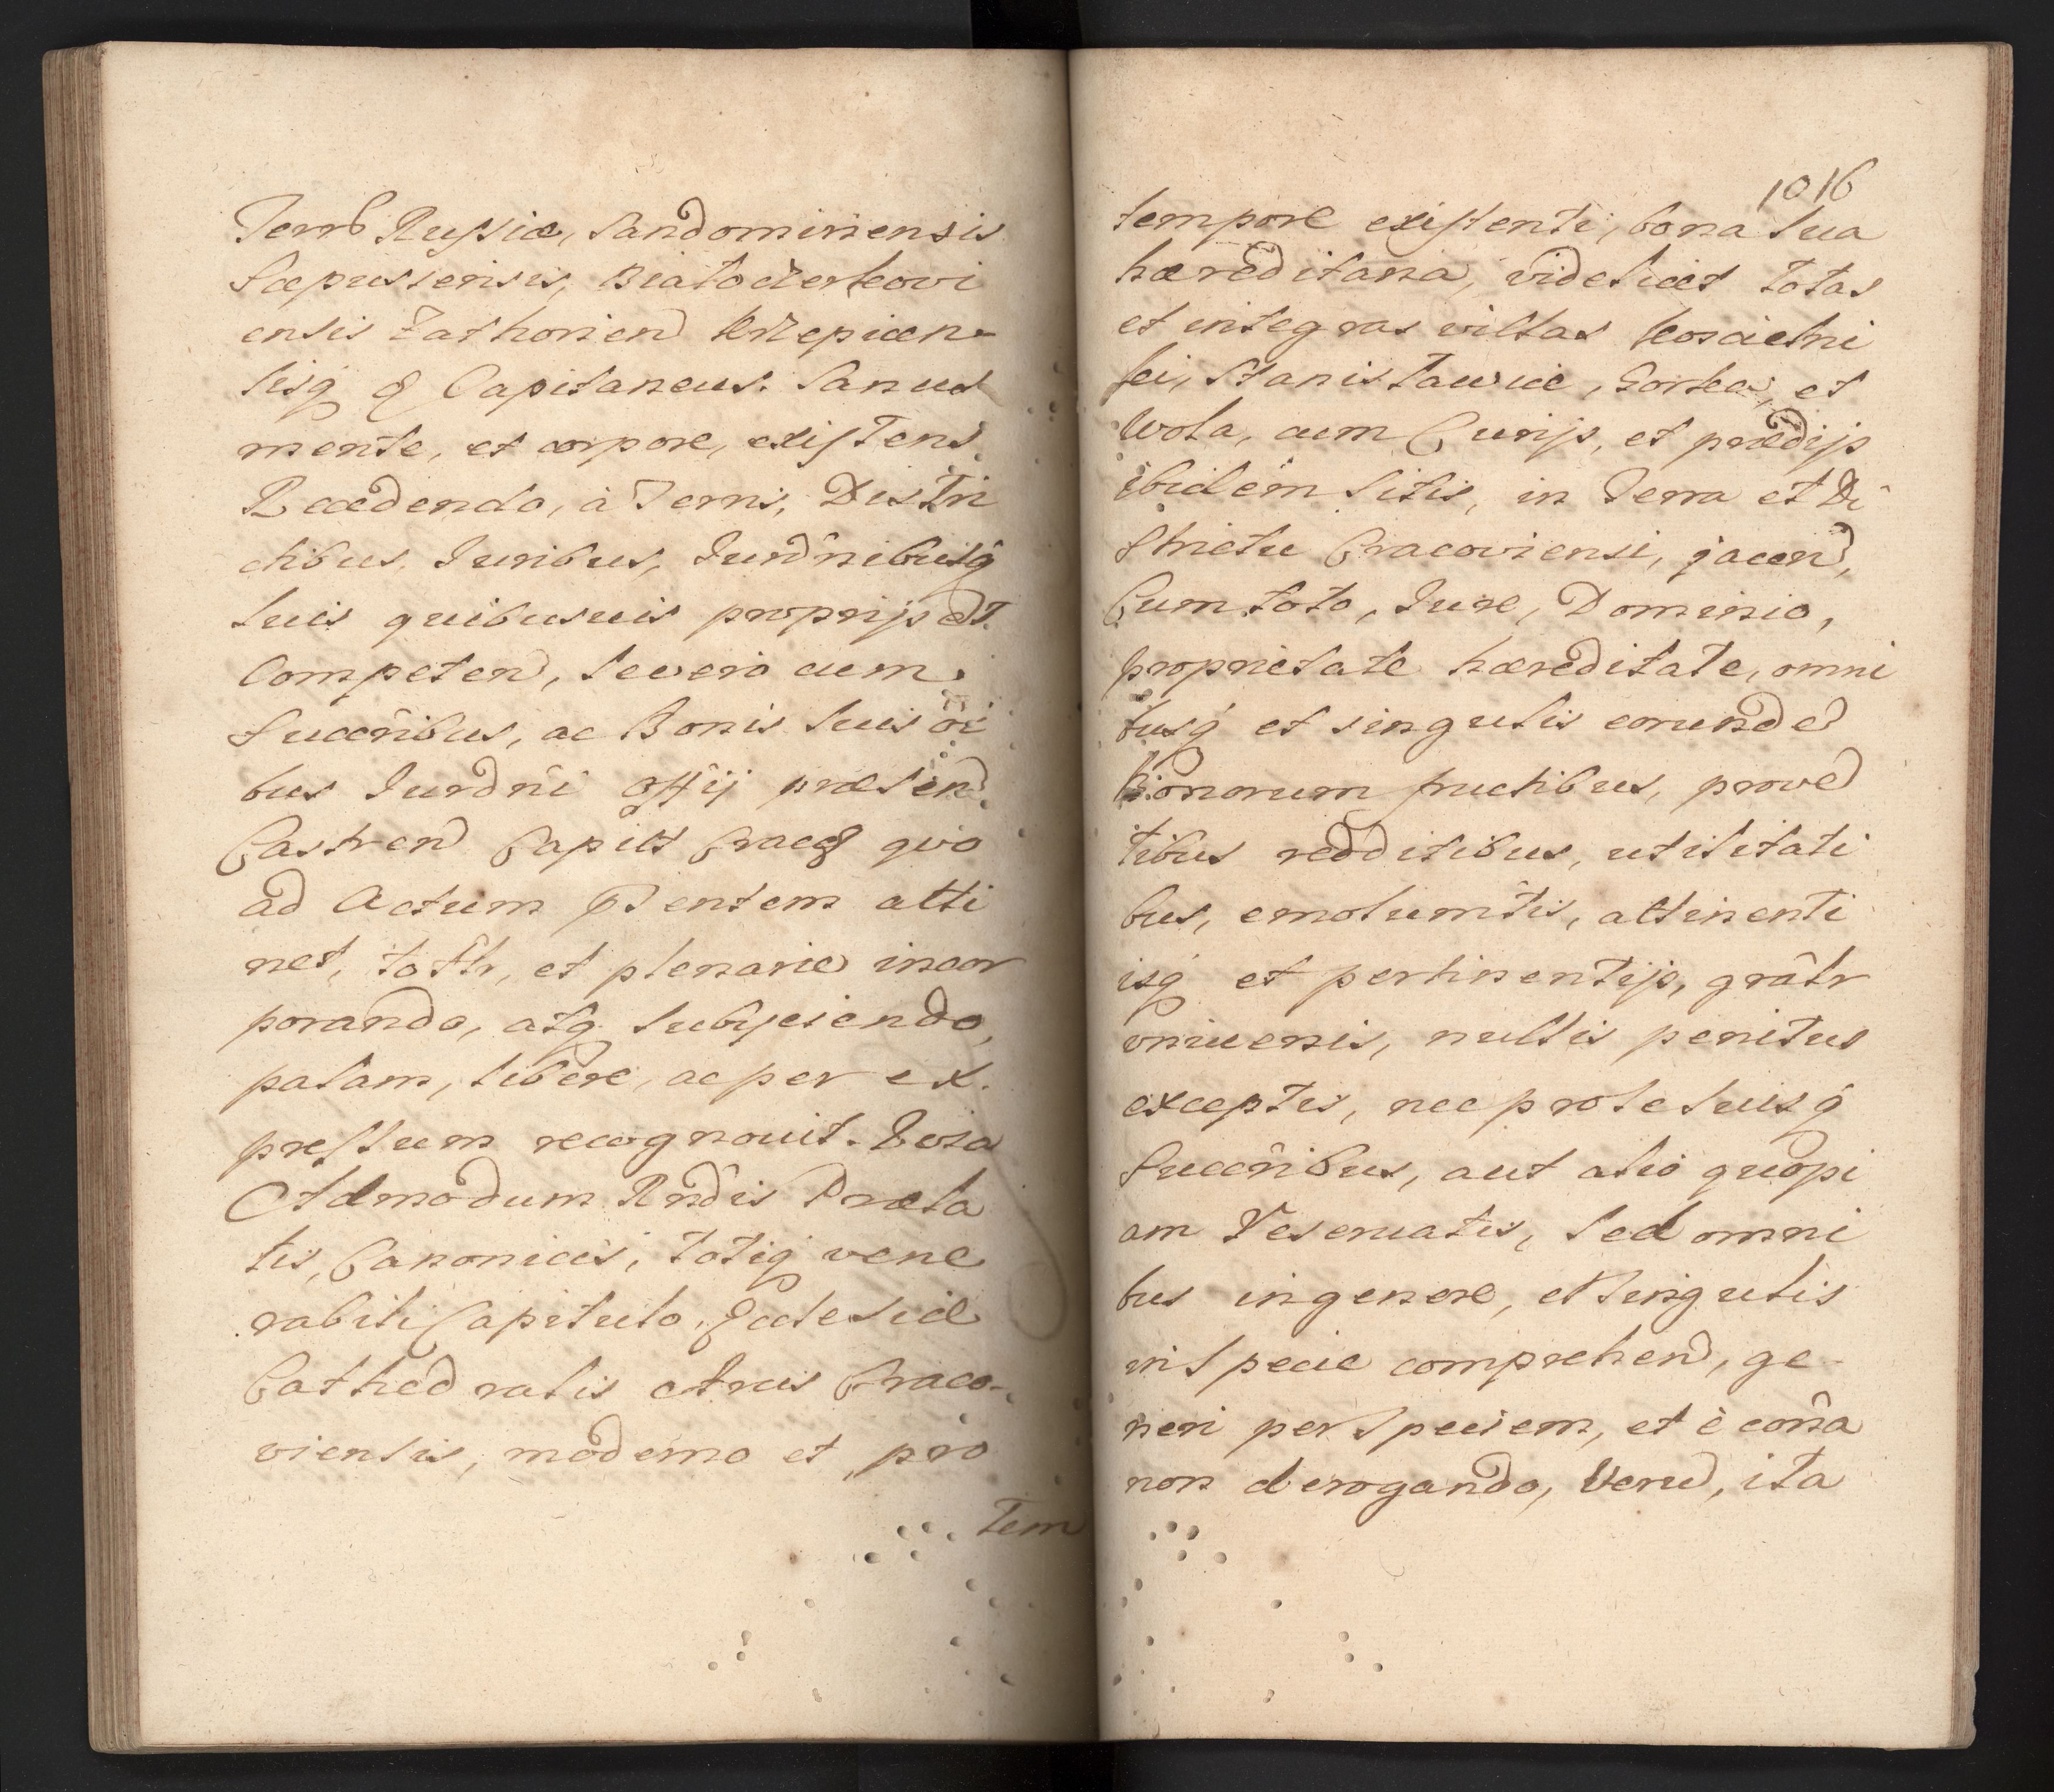 Terrȩ Russiæ, Sandomiriensis
Scepusiensis, Białocerkovi
ensis Zathorien Krzepicen-
sisq̃ & Capitaneus. Sanus
mente, et corpore, existens.
Recedendo, à Terris, Distri
ctibus, Juribus, Jurd̃nibusq̃
suis quibusuis proprijs et
Competen, seuero cum
succr̃ibus, ac Bonis suis oĩ
bus Jurdñi Offij præsen
Castren Capit Crac quo
ad Actum pntentem atti
net, totlr, et plenarie incor
porando, atq̃ subijciendo,
palam, libere, ac per ex.
pressum recognouit. Quia
Admodum Rndis Præla
tis, Canonicis, totiq̃ vene
rabili Capitulo, Ecclesiæ
Cathedralis Arcis Craco-
viensis, moderno et pro
Tem
1016
tempore existenti, bona sua
hæreditaria, videlicet totas
et integras villas Koscielni
ki, Stanisławice, Gorka, et
Wola, cum Curijs, et prædijs
ibidem sitis, in Terra et Di
strictu Cracoviensi, jacen,
Cum toto, Jure, Dominio,
proprietate hæreditate, omni
busq̃ et singulis eorunde
Bonorum fructibus, proved
tibus redditibus, utilitati
bus, emolumtis, attinenti
isq̃ et pertinentijs, grãlr
vniuersis, nullis penitus
exceptis, nec pro se suisq̃
succr̃ibus, aut alio quopi
am reseruatis, sed omni
bus in genere, et singulis
in specie comprehen, ge-
neri per speciem, et è coñа
non derogando, Veru, ita